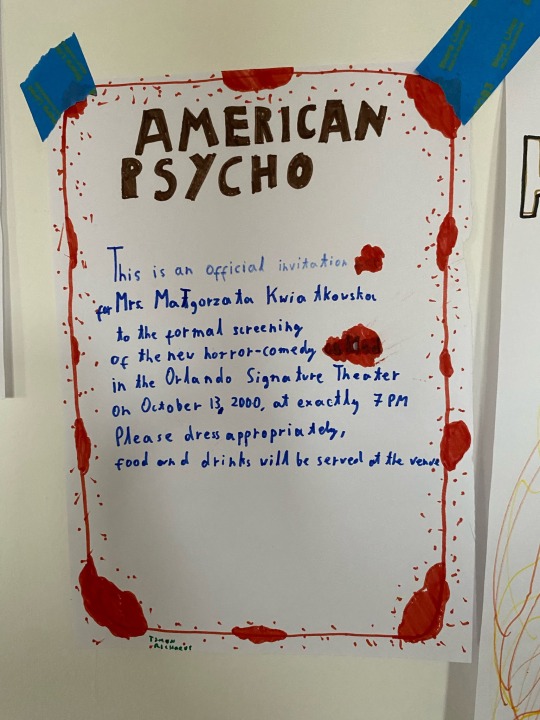 AMERICAN
PSYCHO
This is an official invitation
for Mrs. Małgorzata Kwiatkovska
to the formal screening
of the new horror-comedy
in the Orlando Signature Theater
on October 13, 2000, at exactly 7 PM
Please dress appropriately,
food and drinks will be served at the venue